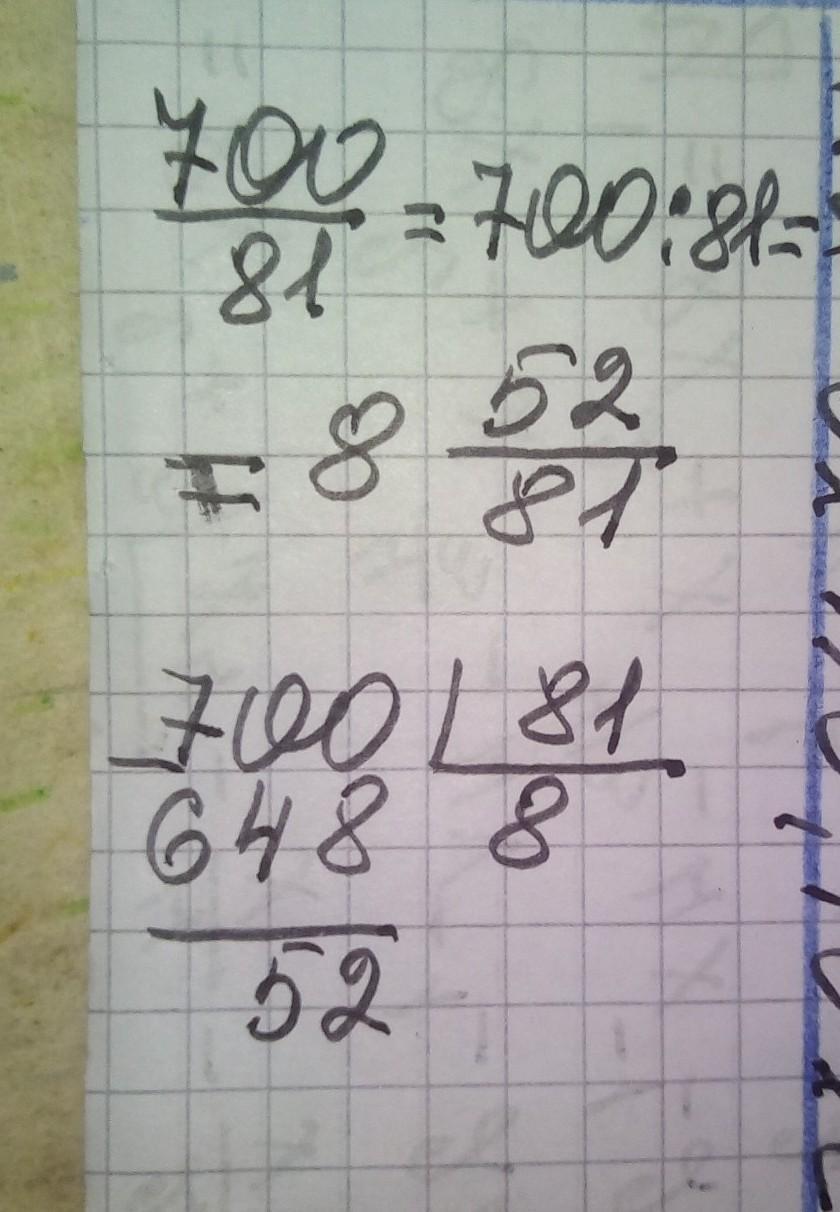 700/81 = 700:81=
= 8 52/81
700 | 81
648 8
52